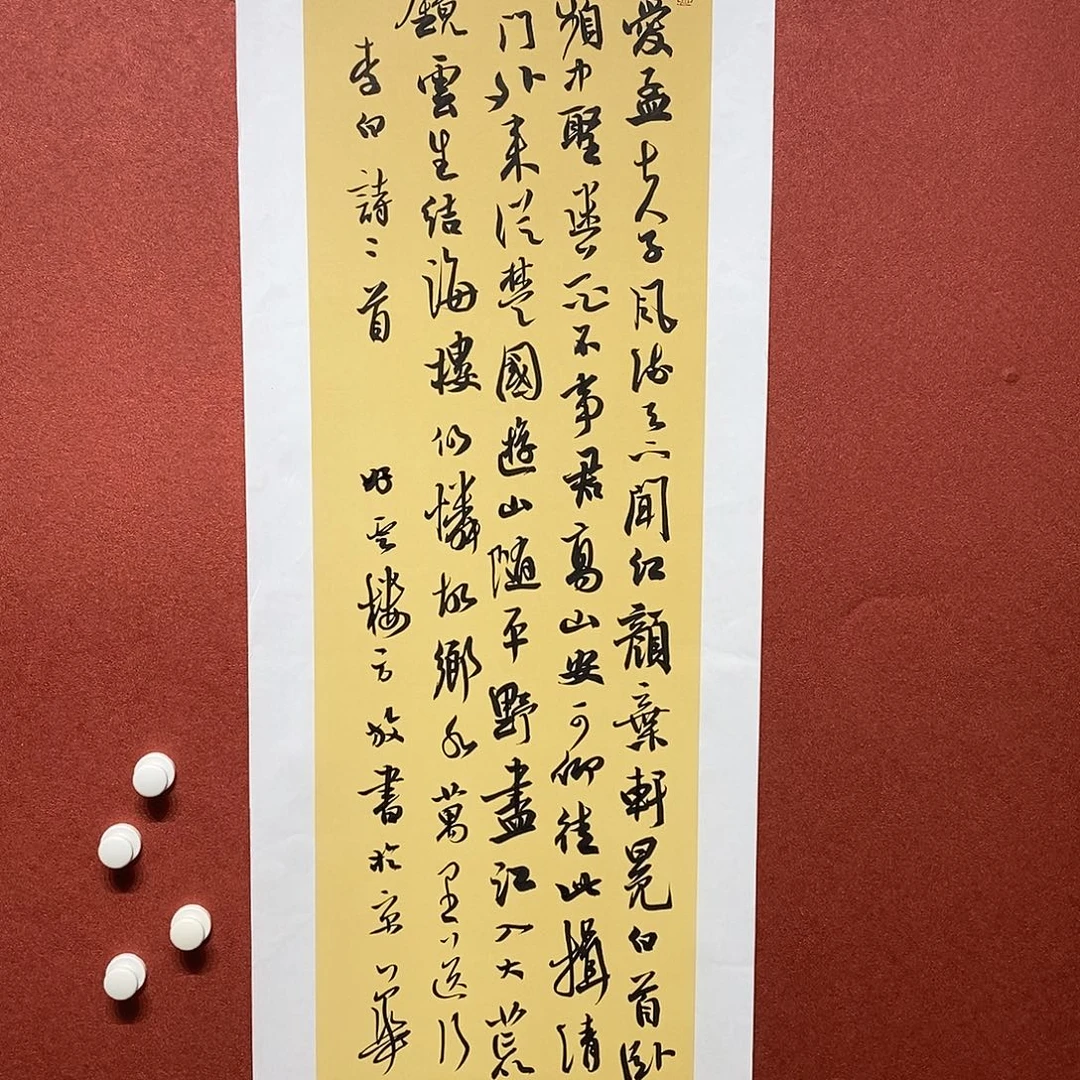 愛孟夫子風流天下聞紅顏棄軒冕白首卧
頻中聖迷花不事君高山安可仰徒此揖清
門外來從楚國遊山隨平野盡江入大荒
鏡雲生結海樓仍憐故鄉水萬里送行
李白詩二首 好雲樓方放書於京華